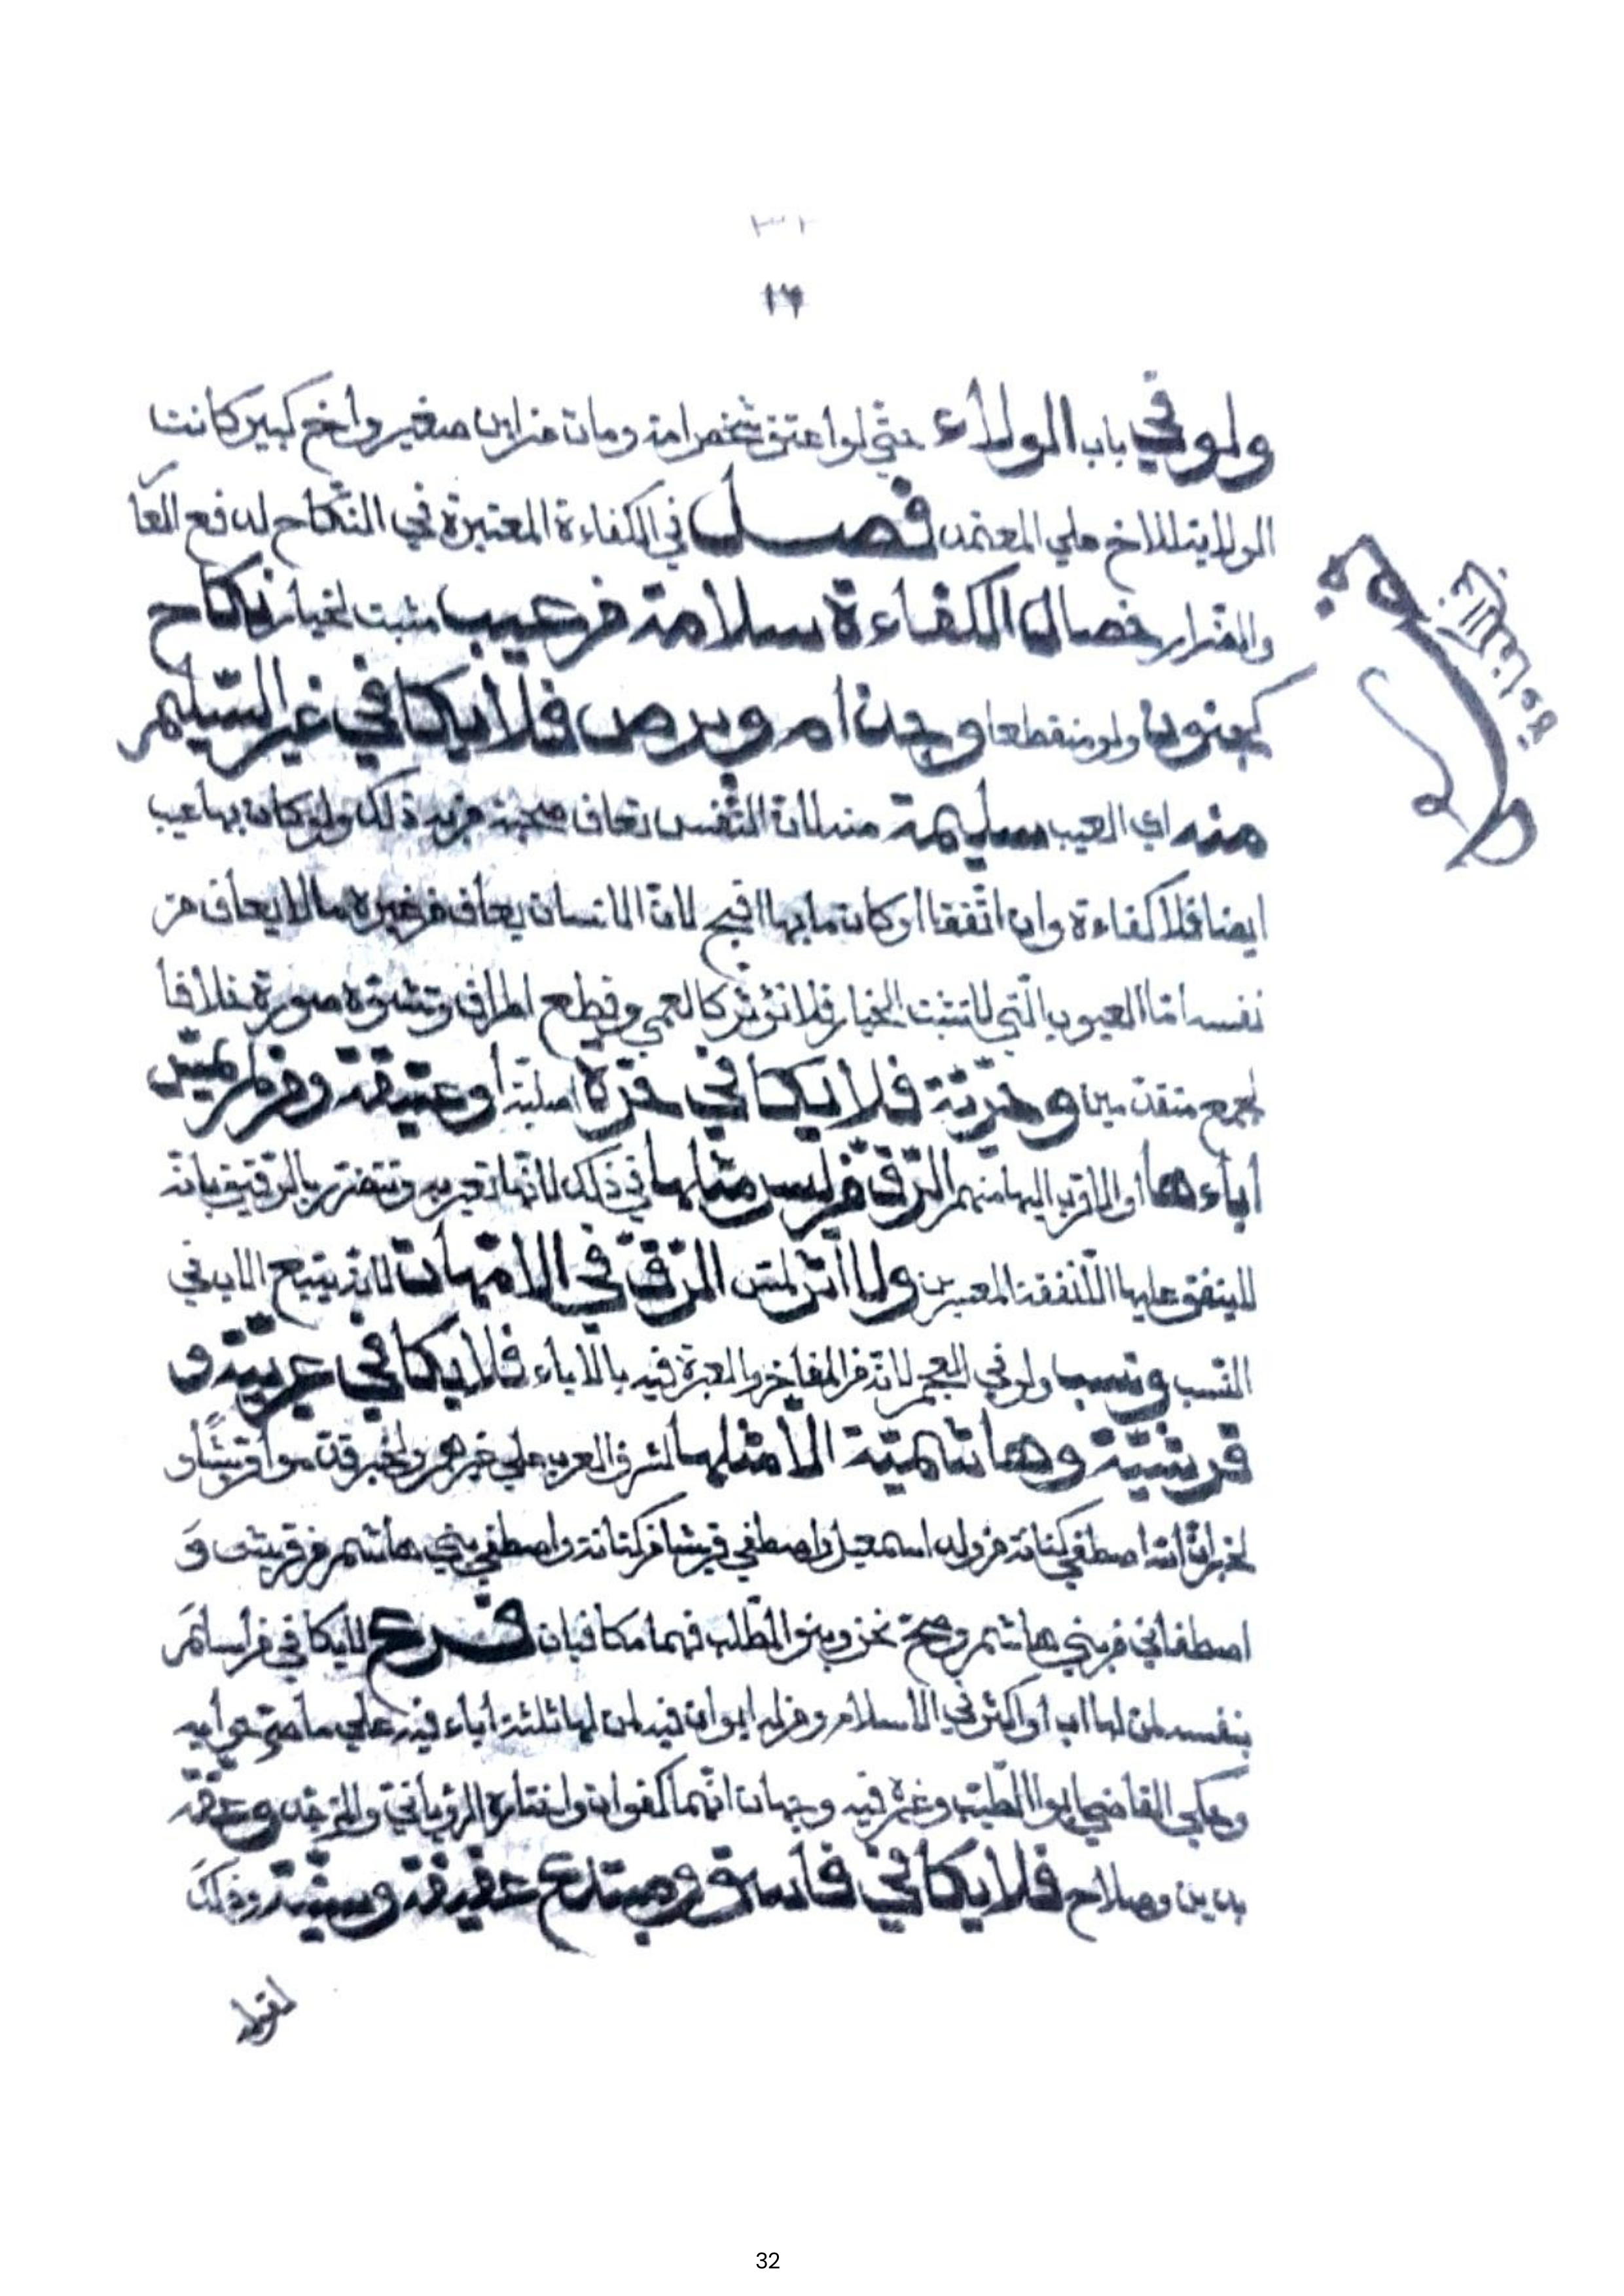 ٣٢
١٦
ولو في باب الولاء حتّي لو اعتق شخص امة ومات عن ابن صغير واخ كبير كانت
الولاية للاخ علي المعتمد فصل في الكفاءة المعتبرة في النّكاح لدفع العا
والضّرار خصال الكفاءة سلامة من عيب مثبت لخيار نكاح
كجنون ولو منقطعا وجذام وبرص فلا يكافي غير السّليم
منه اي العيب سليمة منه لانّ النّفس تعاف صحبة من به ذلك ولو كان بها عيب
ايضا فلا كفاءة وان اتّفقا او كان ما بها اقبح لانّ الانسان يعاف من غيره ما لا يعاف من
نفسه امّا العيوب الّتي لا تثبت الخيار فلا تؤثّر كالعمي وقطع اطراف وتشوّه صورة خلافا
لجمع متقدّمين وحرّيّة فلا يكافي حرّة اصليّة او عتيقة ومن لم يمسّ
اباءها او الاقرب اليها منهم الرّقّ من ليس مثلها في ذلك لانّها تعير به وتتضرّر بالرّقيق بانّه
لا ينفق عليها الّا نفقة المعسرين ولا اثر لمسّ الرّقّ في الامّهات لانّه يتبع الاب في
النّسب ونسب ولو في العجم لانّه من المفاخر والعبرة فيه بالاباء فلا يكافي عربيّة و
قرشيّة وهاشميّة الّا مثلها لشرف العرب علي غيرهم ولخبر قدّموا قريشًا و
لخبر انّ الله اصطفي كنانة من ولد اسمعيل واصطفي قريشا من كنانة واصطفي بني هاشم من قريش وَ
اصطفاني من بني هاشم وصحّ نحن وبنو المطّلب فهما مكافيان فرع لا يكافي من اسلَمَ
بنفسه من لها اب او اكثر في الاسلام ومن له ابوان فيه لمن لها ثلثة اباء فيه علي ما صرّحوا به
وحكي القاضي ابو الطّيّب وغيره فيه وجها انّهما كفوان واختاره الرّوياني والجزم به وعفّة
بدين وصلاح فلا يكافي فاسق ومبتدع عفيفة وسنّيّة وذلكَ
لقوله